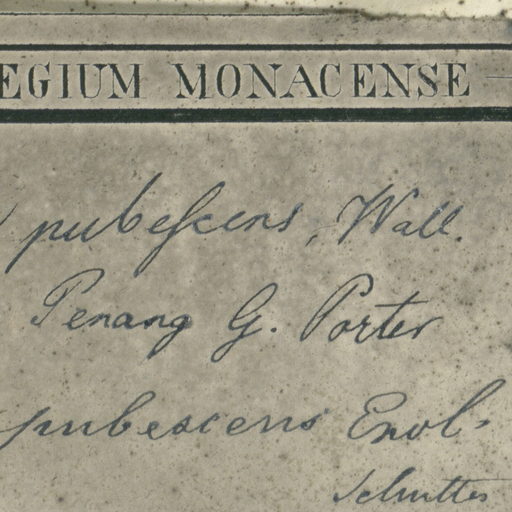 EGIUM MONACENSE
pubescens, Wall
Penang G. Porter
pubescens